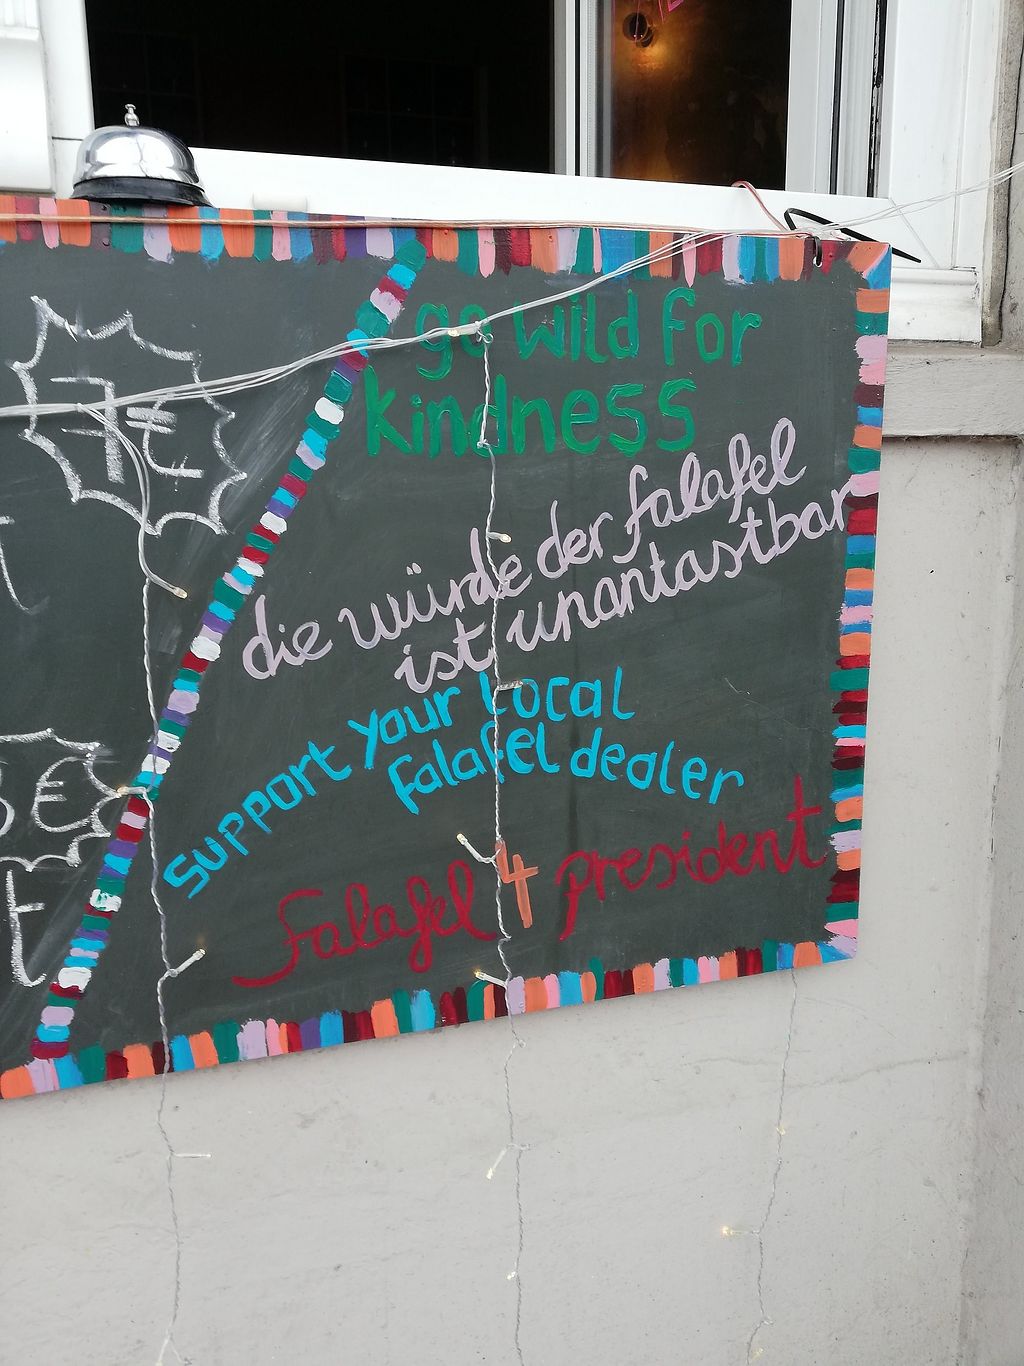 7€
€
t
go wild for
kindness
die würde der falafel
ist unantastbar
Support your local
falafel dealer
falafel 4 president